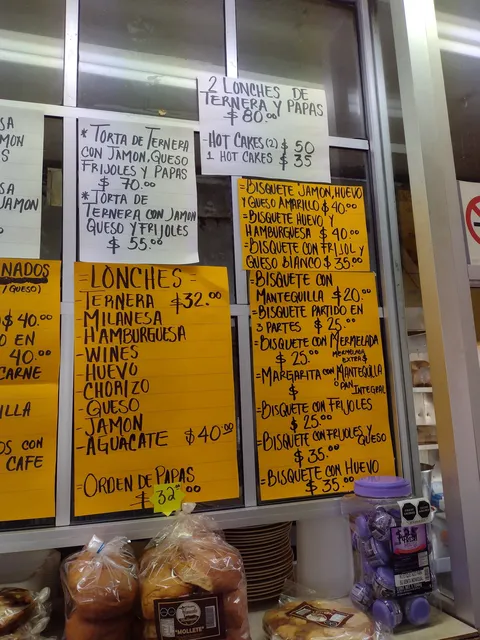 SA
MON
S
SA
JAMON
S
NADOS
/QUESO)
$ 40.00
O EN
40.00
CARNE
ILLA
OS CON
CAFE
* TORTA DE TERNERA
CON JAMON, QUESO
FRIJOLES Y PAPAS
$ 70.00
* TORTA DE
TERNERA CON JAMON
QUESO Y FRIJOLES
$ 55.00
2 LONCHES DE
TERNERA Y PAPAS
$ 80.00
-HOT CAKES (2) $ 50
1 HOT CAKES $ 35
-LONCHES-
-TERNERA $32.00
-MILANESA
-HAMBURGUESA
-WINES
-HUEVO
-CHORIZO
-QUESO
-JAMON
-AGUACATE $40.00
-ORDEN DE PAPAS
$ 32.00
=BISQUETE JAMON, HUEVO
Y QUESO AMARILLO $ 40.00
=BISQUETE HUEVO Y
HAMBURGUESA $ 40.00
=BISQUETE CON FRIJOL Y
QUESO BLANCO $ 35.00
=BISQUETE CON
MANTEQUILLA $20.00
=BISQUETE PARTIDO EN
3 PARTES $ 25.00
=BISQUETE CON MERMELADA
$ 25.00 MERMELADA EXTRA $
=MARGARITA CON MANTEQUILLA
O PAN INTEGRAL
=BISQUETE CON FRIJOLES
$ 25.00
=BISQUETE CON FRIJOLES Y QUESO
$ 35.00
=BISQUETE CON HUEVO
$ 35.00
"MOLLETE"